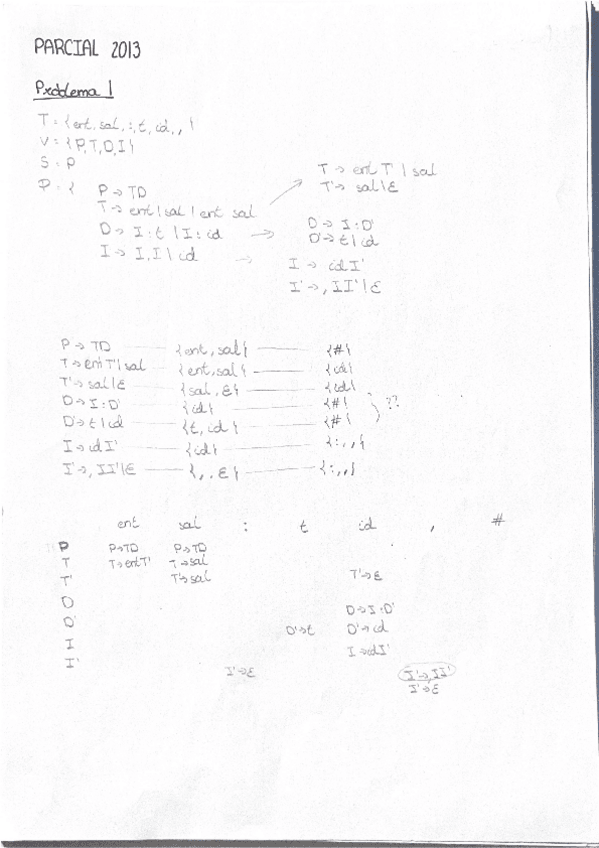 PARCIAL 2013
Problema 1
T = {ent, sal, :, t, id, , }
V = {P,T,D,I}
S = P
P = { P → TD
T → ent | sal | ent sal
D → I:t | I:id
I → I,I | id
T → ent T' | sal
T' → sal | ε
D → I:D'
D' → t | id
I → id I'
I' → , I I' | ε
P → TD {ent, sal} {#}
T → ent T' | sal {ent, sal} {id}
T' → sal | ε {sal, ε} {id}
D → I:D' {id} {#}
D' → t | id {t, id} {#} } ??
I → id I' {id} {:, ,}
I' → , I I' | ε {, . ε} {:, ,}
ent sal : t id , #
P P→TD P→TD
T T→entT' T→sal
T' T'→sal T'→ε
D D→I:D'
D' D'→t D'→id
I I→idI'
I' I'→ε I'→,II'
I'→ε